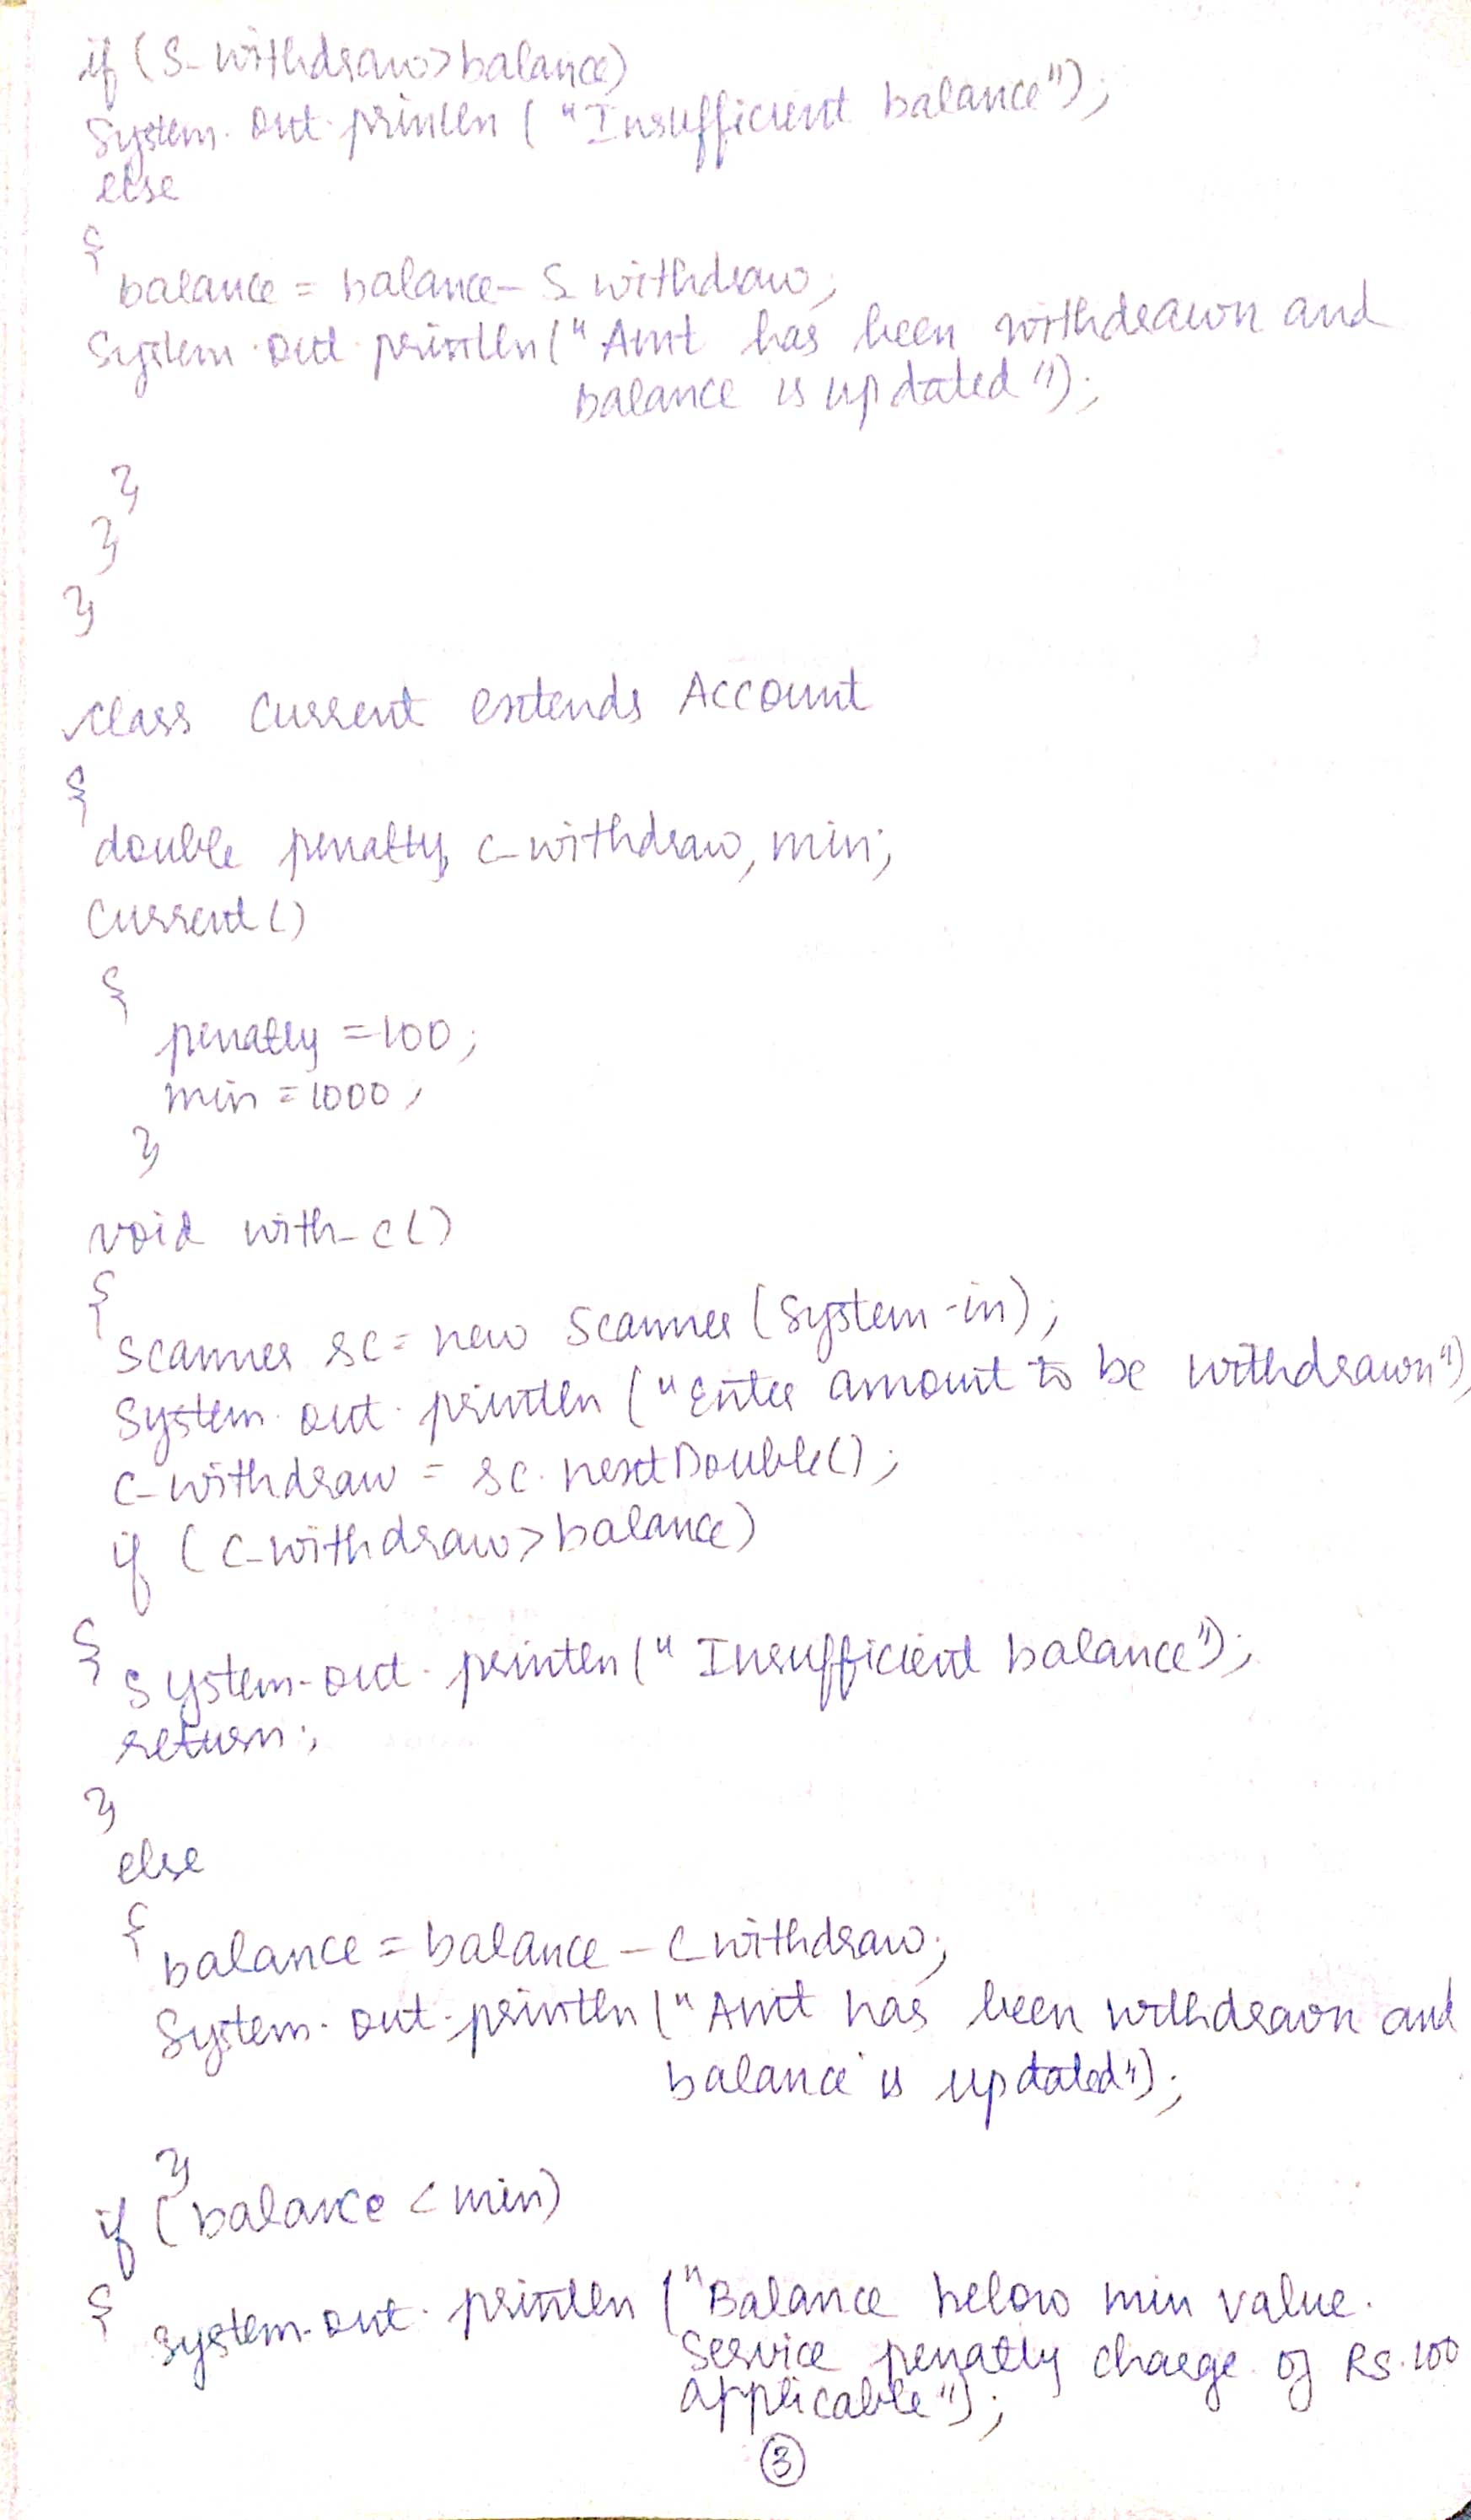 if (S_withdraw>balance)
System.out.println ("Insufficient balance");
else
{
balance = balance - S_withdraw;
System.out.println("Amt has been withdrawn and
balance is updated");
}
}
}
class Current extends Account
{
double penalty, c_withdraw, min;
Current()
{
penalty = 100;
min = 1000;
}
void with_c()
{
Scanner sc = new Scanner (System.in);
System.out.println ("Enter amount to be withdrawn");
c_withdraw = sc.nextDouble();
if (c_withdraw>balance)
{
System.out.println ("Insufficient balance");
return;
}
else
{
balance = balance - c_withdraw;
System.out.println ("Amt has been withdrawn and
balance is updated");
}
if (balance < min)
{
System.out.println ("Balance below min value.
Service penalty charge of RS.100
applicable");
3